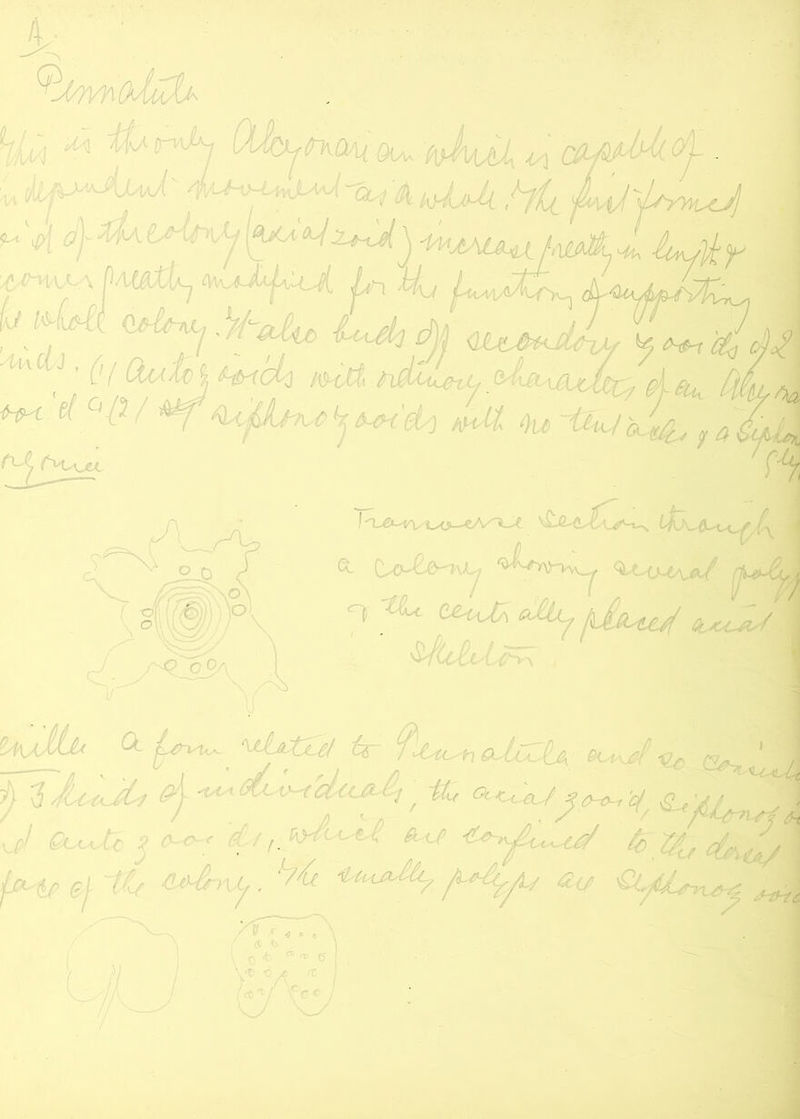 A.
Pennatula
This is the only Alcyonarian which is capable of
independent movement as a whole. The first formed
zooid of the colony (axial zooid) increases greatly in length &
becomes greatly modified for the function of supporting
the whole colony. It also buds off secondary zooids of 2
kinds. (1) Autozooids with ordinary characters of an Alcyona
zooid (2) Siphonozooids with no tentacles & a Siphon
Transverse section through
a Colony showing several polyps
& the centrally placed axial
Skeleton
Renilla a form related to Pennatula and so consists
of 3 kinds of individuals, the axial zooid, Siphonozooid
and autozooids, which are confined to the dorsal
face of the colony. The small polyps are Siphonozooids